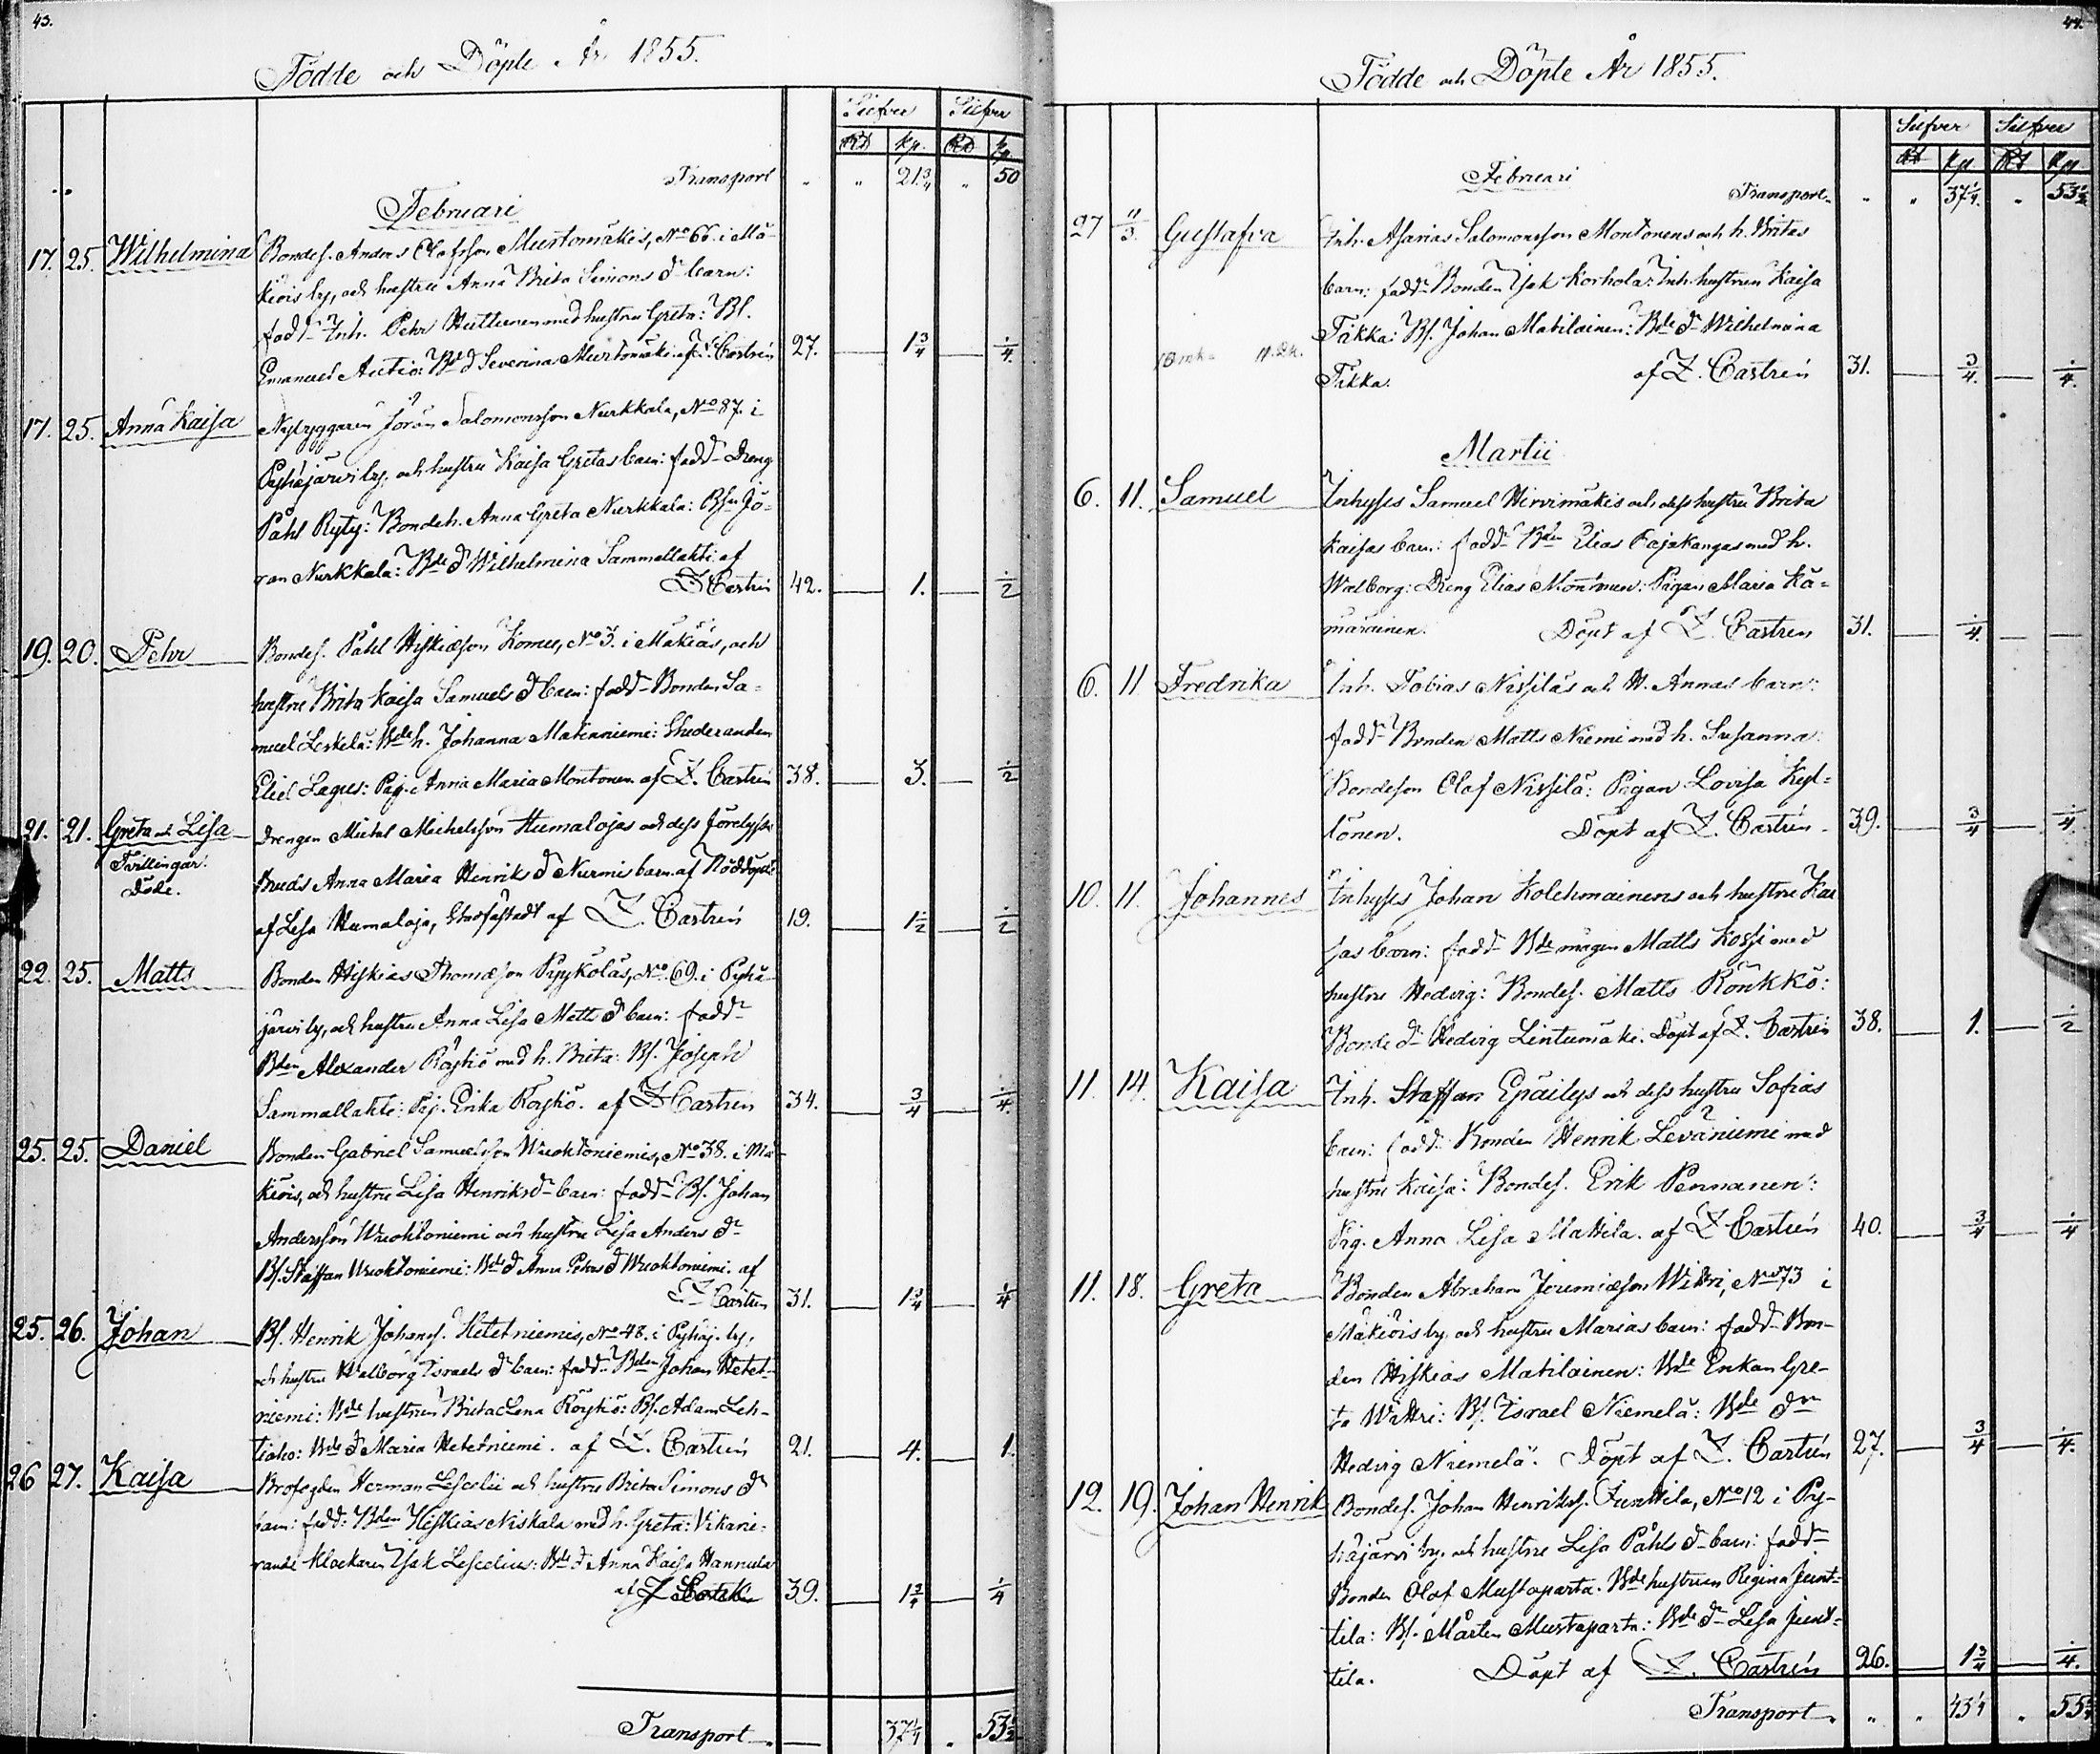 43.
Födde och Döpte År 1855.
Silfver Silfver
Rd kp. Rd kp.
Transport „ „ 21¾ „ 50
Februari
17. 25. Wilhelmina Bondes. Anders Olofsson Murtomäkis, No 66. i Mä-
kiöis by, och hustru Anna Brita Simons dr barn:
fadd- Inh. Pehr Huttunen med hustru Greta: Bs.
Emanuel Autio: Bde d Severina Murtomäki. af Z. Castrén 27. 1¾ ¼
17. 25. Anna Kaisa Nybyggaren Jöran Salomonsson Nurkkala, No 87. i
Pyhäjärvi by. och hustru Kaisa Gretas barn: fadd- Dreng
Påhl Ryty: Bondeh. Anna Greta Nurkkala: Bsn Jö-
ran Nurkkala: Bde d Wilhelmina Sammallahti. af
Z Castrén 42. 1. ½
19. 20. Pehr Bondes. Påhl Hiskiasson Komu, No 3. i Mäkiöis, och
hustru Brita Kaisa Samuels d barn: fadd- Bonden Sa-
muel Leskelä: Bde h. Johanna Matinniemi: Studeranden
Eliel Lagus: Pig. Anna Maria Montonen. af Z. Castrén 38. 3. ½
21. 21. Greta och Lisa Drengen Michel Michelsson Humalojas och dess förelyste
Tvillingar. Bruds Anna Maria Henriks d Nurmis barn. af Nöddöpte
Döde. af Lisa Humaloja, Stadfästadt af Z. Castrén 19. 1½ ½
22. 25. Matts Bonden Hiskias Thomasson Pyykoläs, No 69. i Pyhä-
järvi by, och hustru Anna Lisa Matts d barn: fadd-
Bden Alexander Röytiö med h. Brita: Bs. Joseph
Sammallahti: Pig. Erika Röytiö. af Z Castrén 34. ¾ ¼
25. 25. Daniel Bonden Gabriel Samuelsson Wuohtoniemis, No 38. i Mä-
kiöis, och hustru Lisa Henriksdr barn: fadd- Bs. Johan
Andersson Wuohtoniemi och hustru Lisa Anders dr
Bs. Staffan Wuohtoniemi: Bde d Anna Pehrs d Wuohtoniemi. af
Z Castrén 31. 1¾ ¼
25. 26. Johan Bs. Henrik Johanss. Hetetniemis, No 48. i Pyhäj. by,
och hustru Walborg Israels dr barn: fadd- Bden Johan Hetet-
niemi: Bde hustrun Brita Lena Röytiö: Bs. Adam Leh-
tiaho: Bde d Maria Hetetniemi. af Z. Castrén 21. 4. 1.
26 27. Kaisa Brofogden Herman Lescelii och hustru Brita Simons dr
barn: fadd: Bden Hiskias Niskala med h. Greta: Vikarie-
rande Klockaren Isak Lescelius: Bde d Anna Kaisa Hannula
af Z 39. 1¾ ¼
Transport 37¼ „ 53½
44.
Födde och Döpte År 1855.
Silfver Silfver
Rd kp Rd kp
Februari
Transport „ „ 37¼ „ 53½
27 11/3. Gustafva Inh. Asarias Salomonsson Montonens och h. Britas
barn: fadd- Bonden Isak Korhola: Inh. hustrun Kaisa
Tikka: Bs. Johan Matilainen: Bde dr Wilhelmina
Tikka. af Z. Castrén 31. ¾ ¼
Martii
6. 11. Samuel Inhyses Samuel Hirvimäkis och dess hustru Brita
Kaisas barn: fadd- Bden Elias Pajakangas med h.
Walborg: Dreng Elias Mömmen: Pigan Maria Kä-
märäinen. Döpt af Z. Castrén 31. ¼
6. 11 Fredrika Inh. Tobias Nissiläs och H. Annas barn:
fadd- Bonden Matts Niemi med h. Susanna:
Bondeson Olof Nissilä: Pigan Lovisa Kyl-
lönen. Döpt af Z. Castrén. 39. ¾ ¼
10. 11. Johannes Inhyses Johan Kolehmainens och hustru Kai
sas barn: fadd- Bde mågen Matts Kossi med
hustru Hedvig: Bondes. Matts Rönkkö:
Bonde dr Hedvig Lintumäki. Döpt af Z. Castrén 38. 1. ½
11. 14. Kaisa Inh. Staffan Epäilys och dess hustru Sofias
barn: fadd- Bonden Henrik Leväniemi med
hustru Kaisa: Bondes. Erik Pennanen:
Pig. Anna Lisa Mattila. af Z Castrén 40. ¾ ¼
11. 18. Greta Bonden Abraham Jeremiasson Wittri, No 73 i
Mäkiöis by, och hustru Marias barn: fadd- Bon-
den Hiskias Matilainen: Bde Enkan Gre-
ta Wittri: Bs. Israel Niemelä: Bde dr
Hedvig Niemelä. Döpt af Z. Castrén 27. ¾ ¼
12. 19. Johan Henrik Bondes. Johan Henrikss. Junttila, No 12 i Py-
häjärvi by, och hustru Lisa Påhls dr barn: fadd-
Bonden Olof Mustaparta. Bde hustrun Regina Junt-
tila: Bs. Mårten Mustaparta: Bde dr Lisa Junt-
tila. Döpt af Z. Castrén 26. 1¾ ¼
Transport „ „ 43¼ „ 55¼